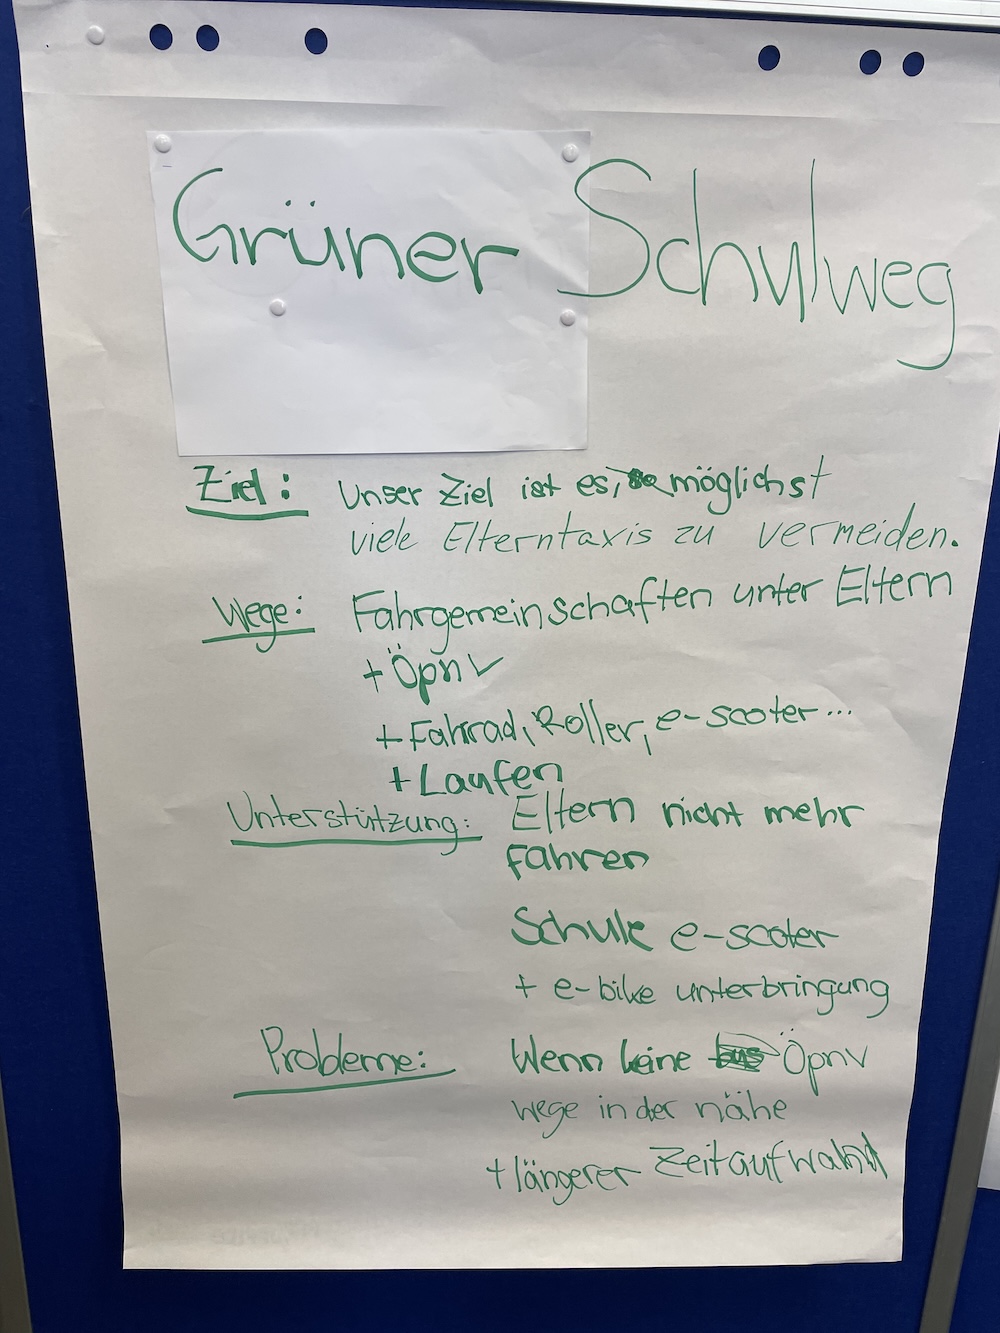 Grüner Schulweg
Ziel: Unser Ziel ist es, möglichst
viele Elterntaxis zu vermeiden.
Wege: Fahrgemeinschaften unter Eltern
+ Öpnv
+ Fahrrad, Roller, e-scoter...
+ Laufen
Unterstützung: Eltern nicht mehr
fahren
Schule e-scoter
+ e-bike unterbringung
Probleme: Wenn keine Öpnv
wege in der nähe
+ längerer Zeitaufwand